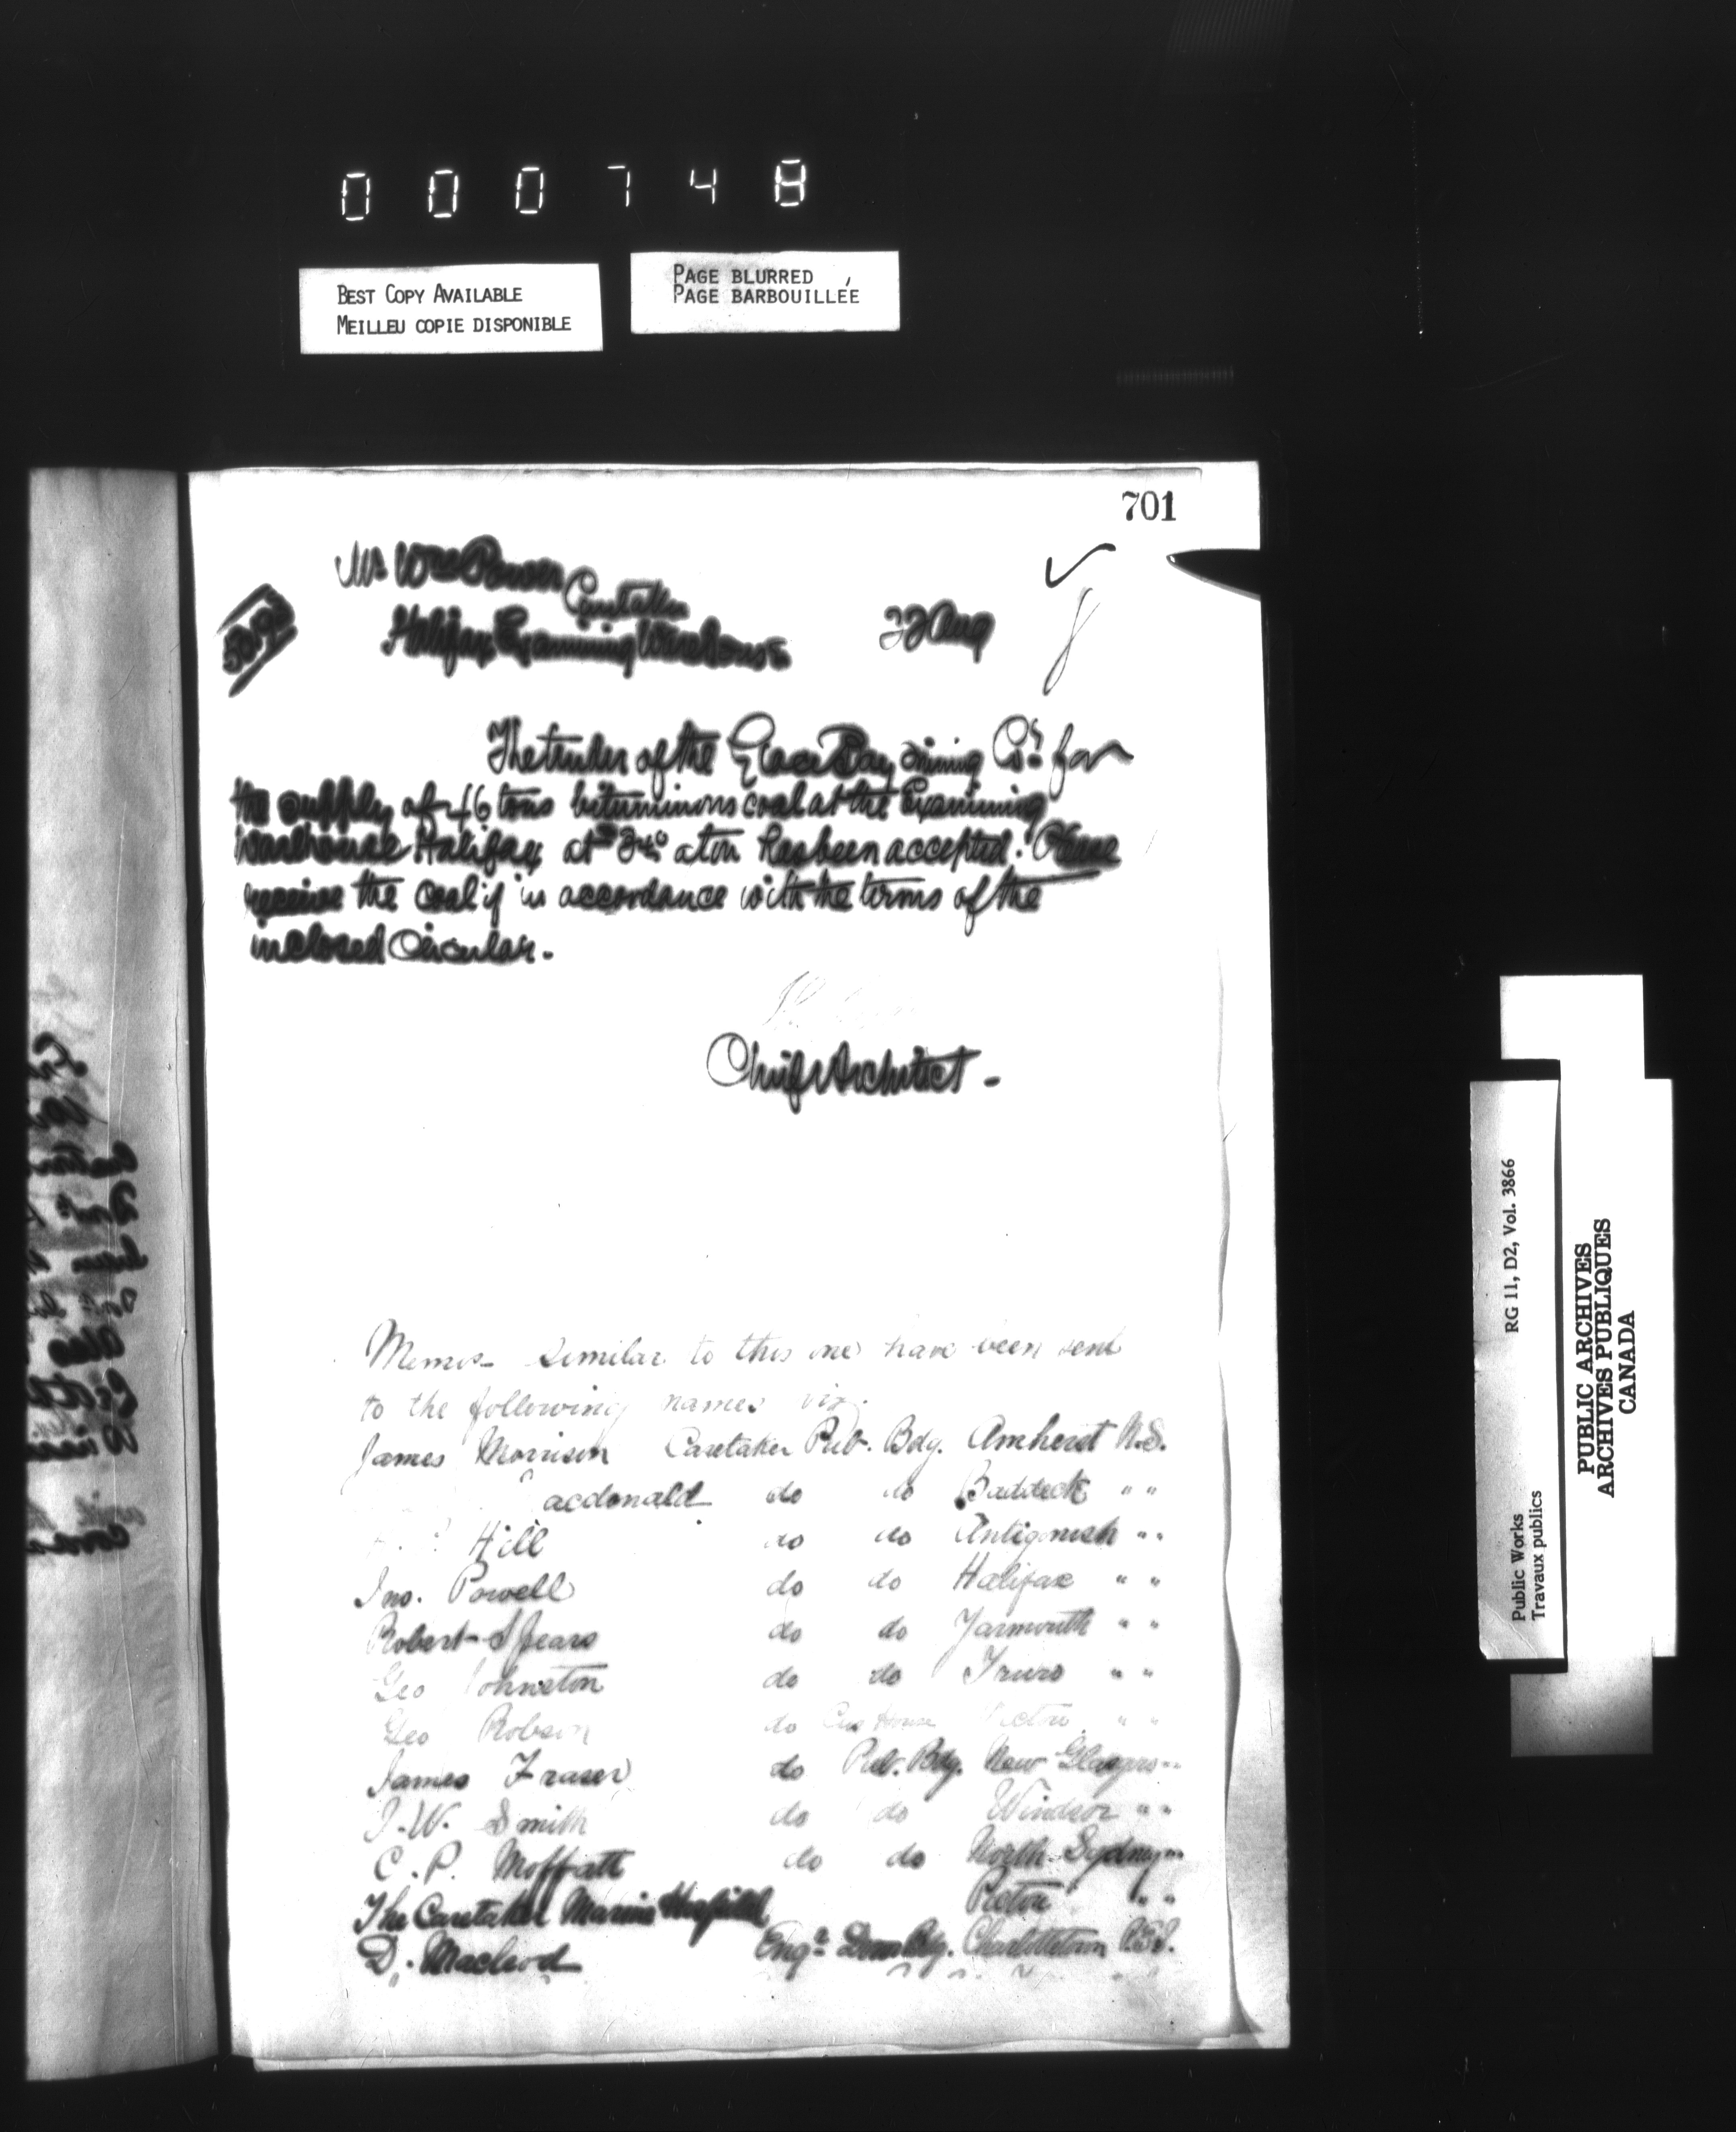 000748
BEST COPY AVAILABLE
MEILLEU COPIE DISPONIBLE
PAGE BLURRED
PAGE BARBOUILLÉE
701
Mr Wm Power
Caretaker
Halifax Examining Warehouse
22 Aug
The tender of the Glace Bay Mining Co. for
the supply of 46 tons bituminous coal at the Examining
Warehouse Halifax, at a ton has been accepted. Please
receive the coal if in accordance with the terms of the
inclosed Circular.
Chief Architect -
Memos similar to this one have been sent
to the following names viz.
James Morrison Caretaker Pub. Bdg. Amherst N.S.
acdonald do do Baddeck " "
Hill do do Antigonish " "
Jno. Powell do do Halifax " "
Robert Spears do do Yarmouth " "
Geo Johnston do do Truro " "
Geo Robson do Cus House Pictou " "
James Fraser do Pub. Bdg. New Glasgow " "
J. W. Smith do do Windsor " "
C. P. Moffatt do do North Sydney " "
The Caretaker Marine Hospital Pictou " "
D. Macleod Engr. Dom Bdg. Charlottetown P.E.I.
Public Works RG 11, D2, Vol. 3866
Travaux publics
PUBLIC ARCHIVES
ARCHIVES PUBLIQUES
CANADA